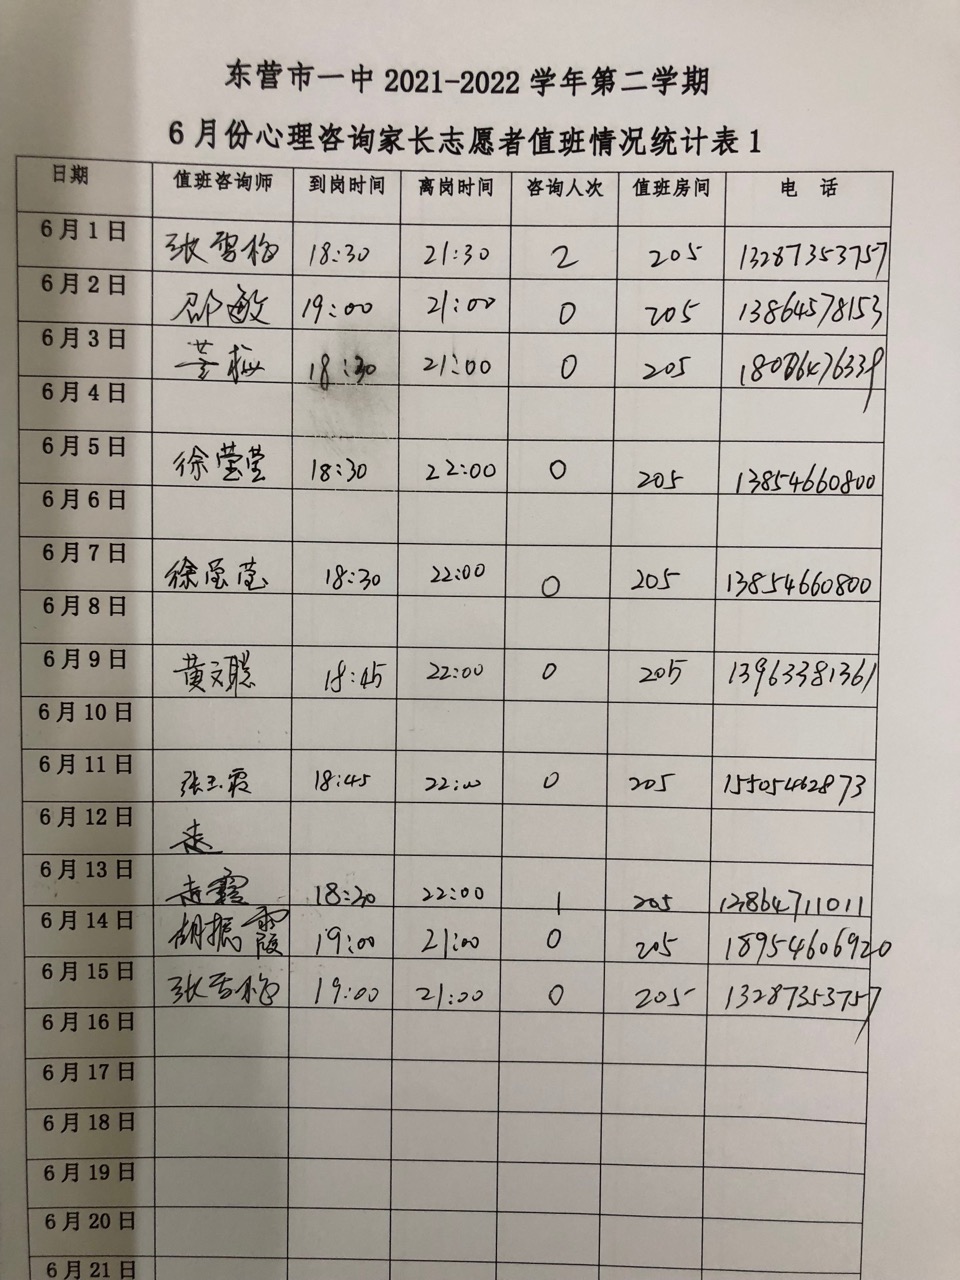 东营市一中 2021-2022 学年第二学期
6 月份心理咨询家长志愿者值班情况统计表 1
日期 值班咨询师 到岗时间 离岗时间 咨询人次 值班房间 电 话
6 月 1 日 张雪梅 18:30 21:30 2 205 13287353757
6 月 2 日 邵敏 19:00 21:00 0 205 13864578153
6 月 3 日 18:30 21:00 0 205
6 月 4 日
6 月 5 日 徐莹莹 18:30 22:00 0 205 13854660800
6 月 6 日
6 月 7 日 徐莹莹 18:30 22:00 0 205 13854660800
6 月 8 日
6 月 9 日 黄文聪 18:45 22:00 0 205 13963381361
6 月 10 日
6 月 11 日 张玉霞 18:45 22:00 0 205 15505462873
6 月 12 日
6 月 13 日 18:30 22:00 1 205
6 月 14 日 胡振霞 19:00 21:00 0 205 18954606920
6 月 15 日 张雪梅 19:00 21:00 0 205 13287353757
6 月 16 日
6 月 17 日
6 月 18 日
6 月 19 日
6 月 20 日
6 月 21 日